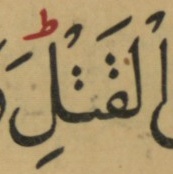 الْقَتْلِ ؕ